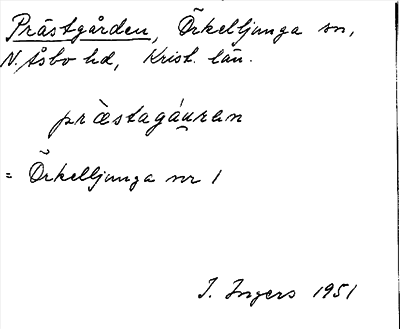 Prästgården, Örkelljunga sn,
N. Åsbo hd, Krist. län.
præ̀stagáu̯ran
= Örkelljunga nr 1
I. Ingers 1951